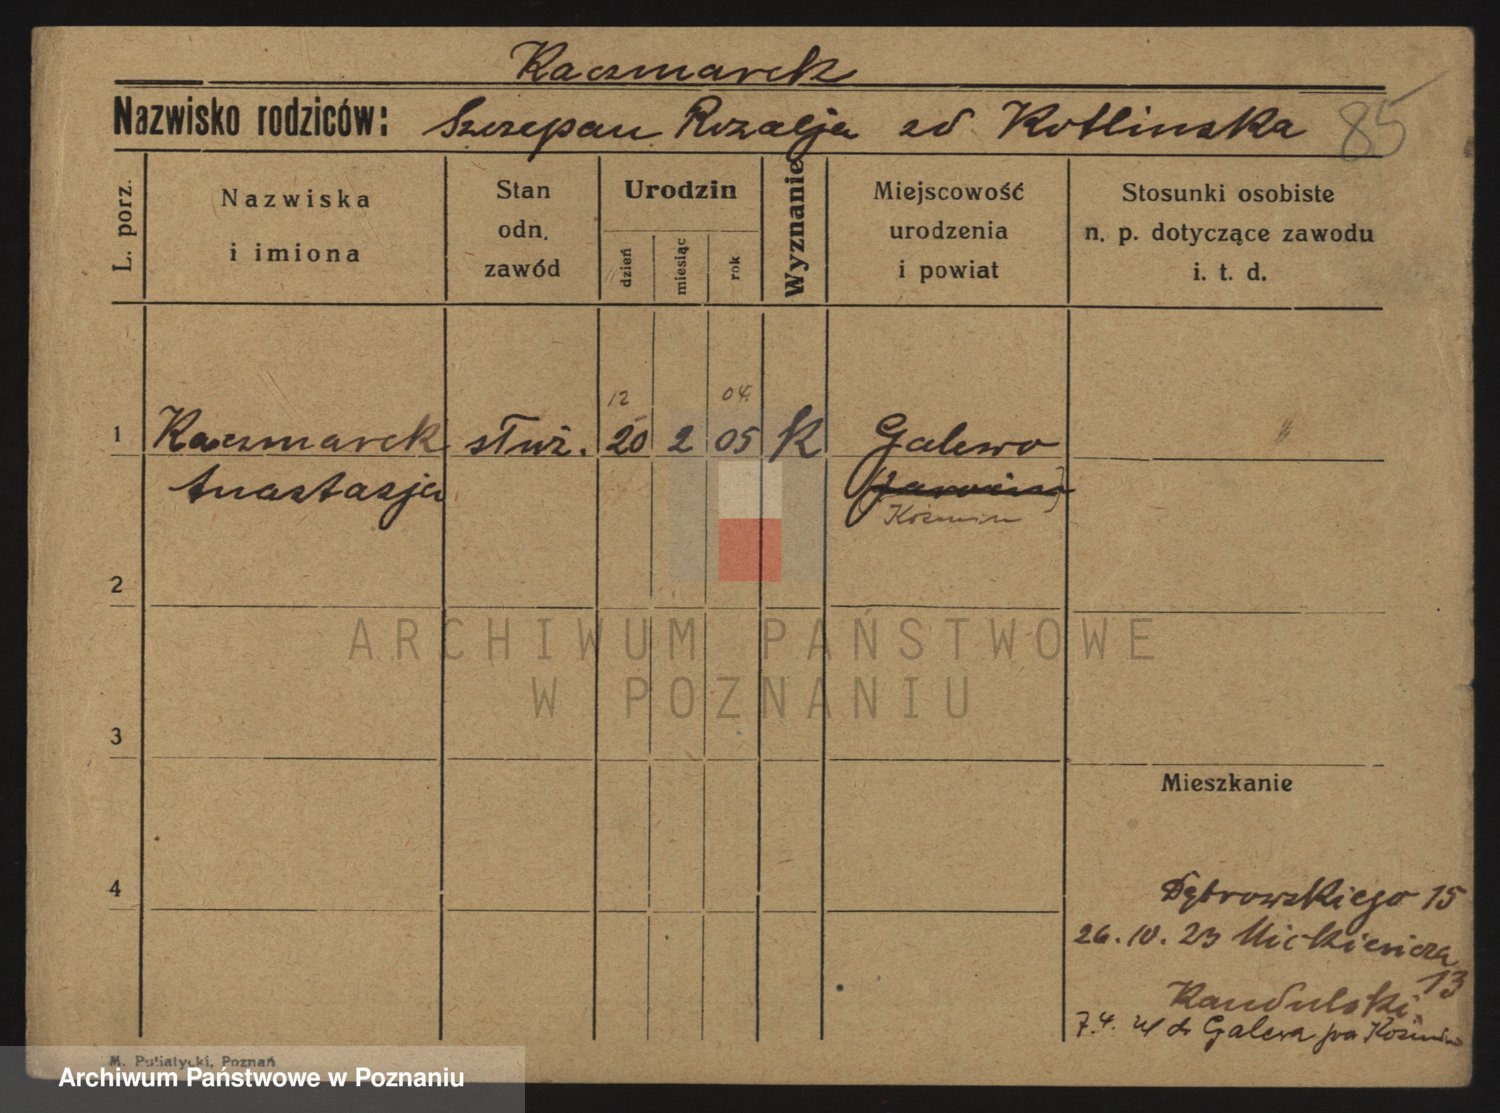 Kaczmarek
Nazwisko rodziców: Szczepan Rozalja zd Kotlinska 85
L. porz.
Nazwiska
i imiona
Stan
odn.
zawód
Urodzin
dzień
miesiąc
rok
Wyznanie
Miejscowość
urodzenia
i powiat
Stosunki osobiste
n. p. dotyczące zawodu
i. t. d.
12 04.
1 Kaczmarek służ. 20 2 05 K Galewo
Anastazja (Jarocin)
Koźmin
2
ARCHIWUM PAŃSTWOWE
W POZNANIU
3
Mieszkanie
4
Dąbrowskiego 15
26. 10. 23 Mickiewicza
13
Kandulski.
7.4. 24 do Galewa pow Koźmin
M. Putiatycki, Poznań
Archiwum Państwowe w Poznaniu